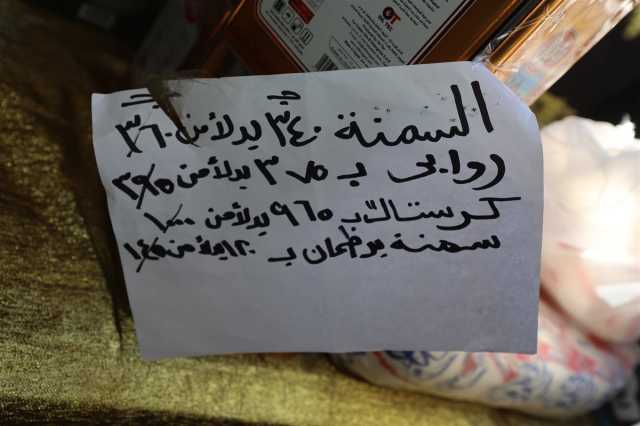 السمنة ٣٤٠ بدلاً من ٣٦٠
روابي ب ٣٧٥ بدلاً من ٣٩٥
كرستال ب ٩٦٥ بدلاً من ١٠٠٠
سمنة بو طحان ب ١٢٠ بدلاً من